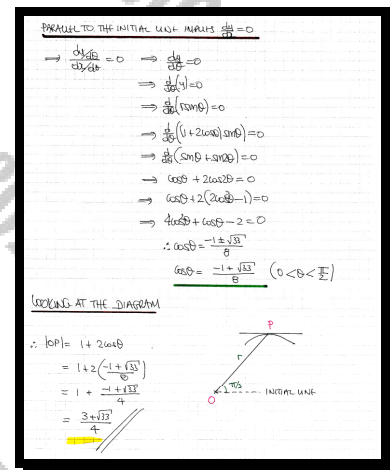 PARALLEL TO THE INITIAL LINE IMPLIES dy/dx = 0
⇒ (dy/dθ)/(dx/dθ) = 0 ⇒ dy/dθ = 0
⇒ d/dθ(y) = 0
⇒ d/dθ(rsinθ) = 0
⇒ d/dθ((1+2cosθ)sinθ) = 0
⇒ d/dθ(sinθ + sin2θ) = 0
⇒ cosθ + 2cos2θ = 0
⇒ cosθ + 2(2cos²θ-1) = 0
⇒ 4cos²θ + cosθ - 2 = 0
∴ cosθ = (-1 ± √33)/8
cosθ = (-1 + √33)/8 (0 < θ < π/2)
LOOKING AT THE DIAGRAM
∴ |OP| = 1 + 2cosθ
= 1 + 2((-1 + √33)/8)
= 1 + (-1 + √33)/4
= (3 + √33)/4
P
r
O
INITIAL LINE